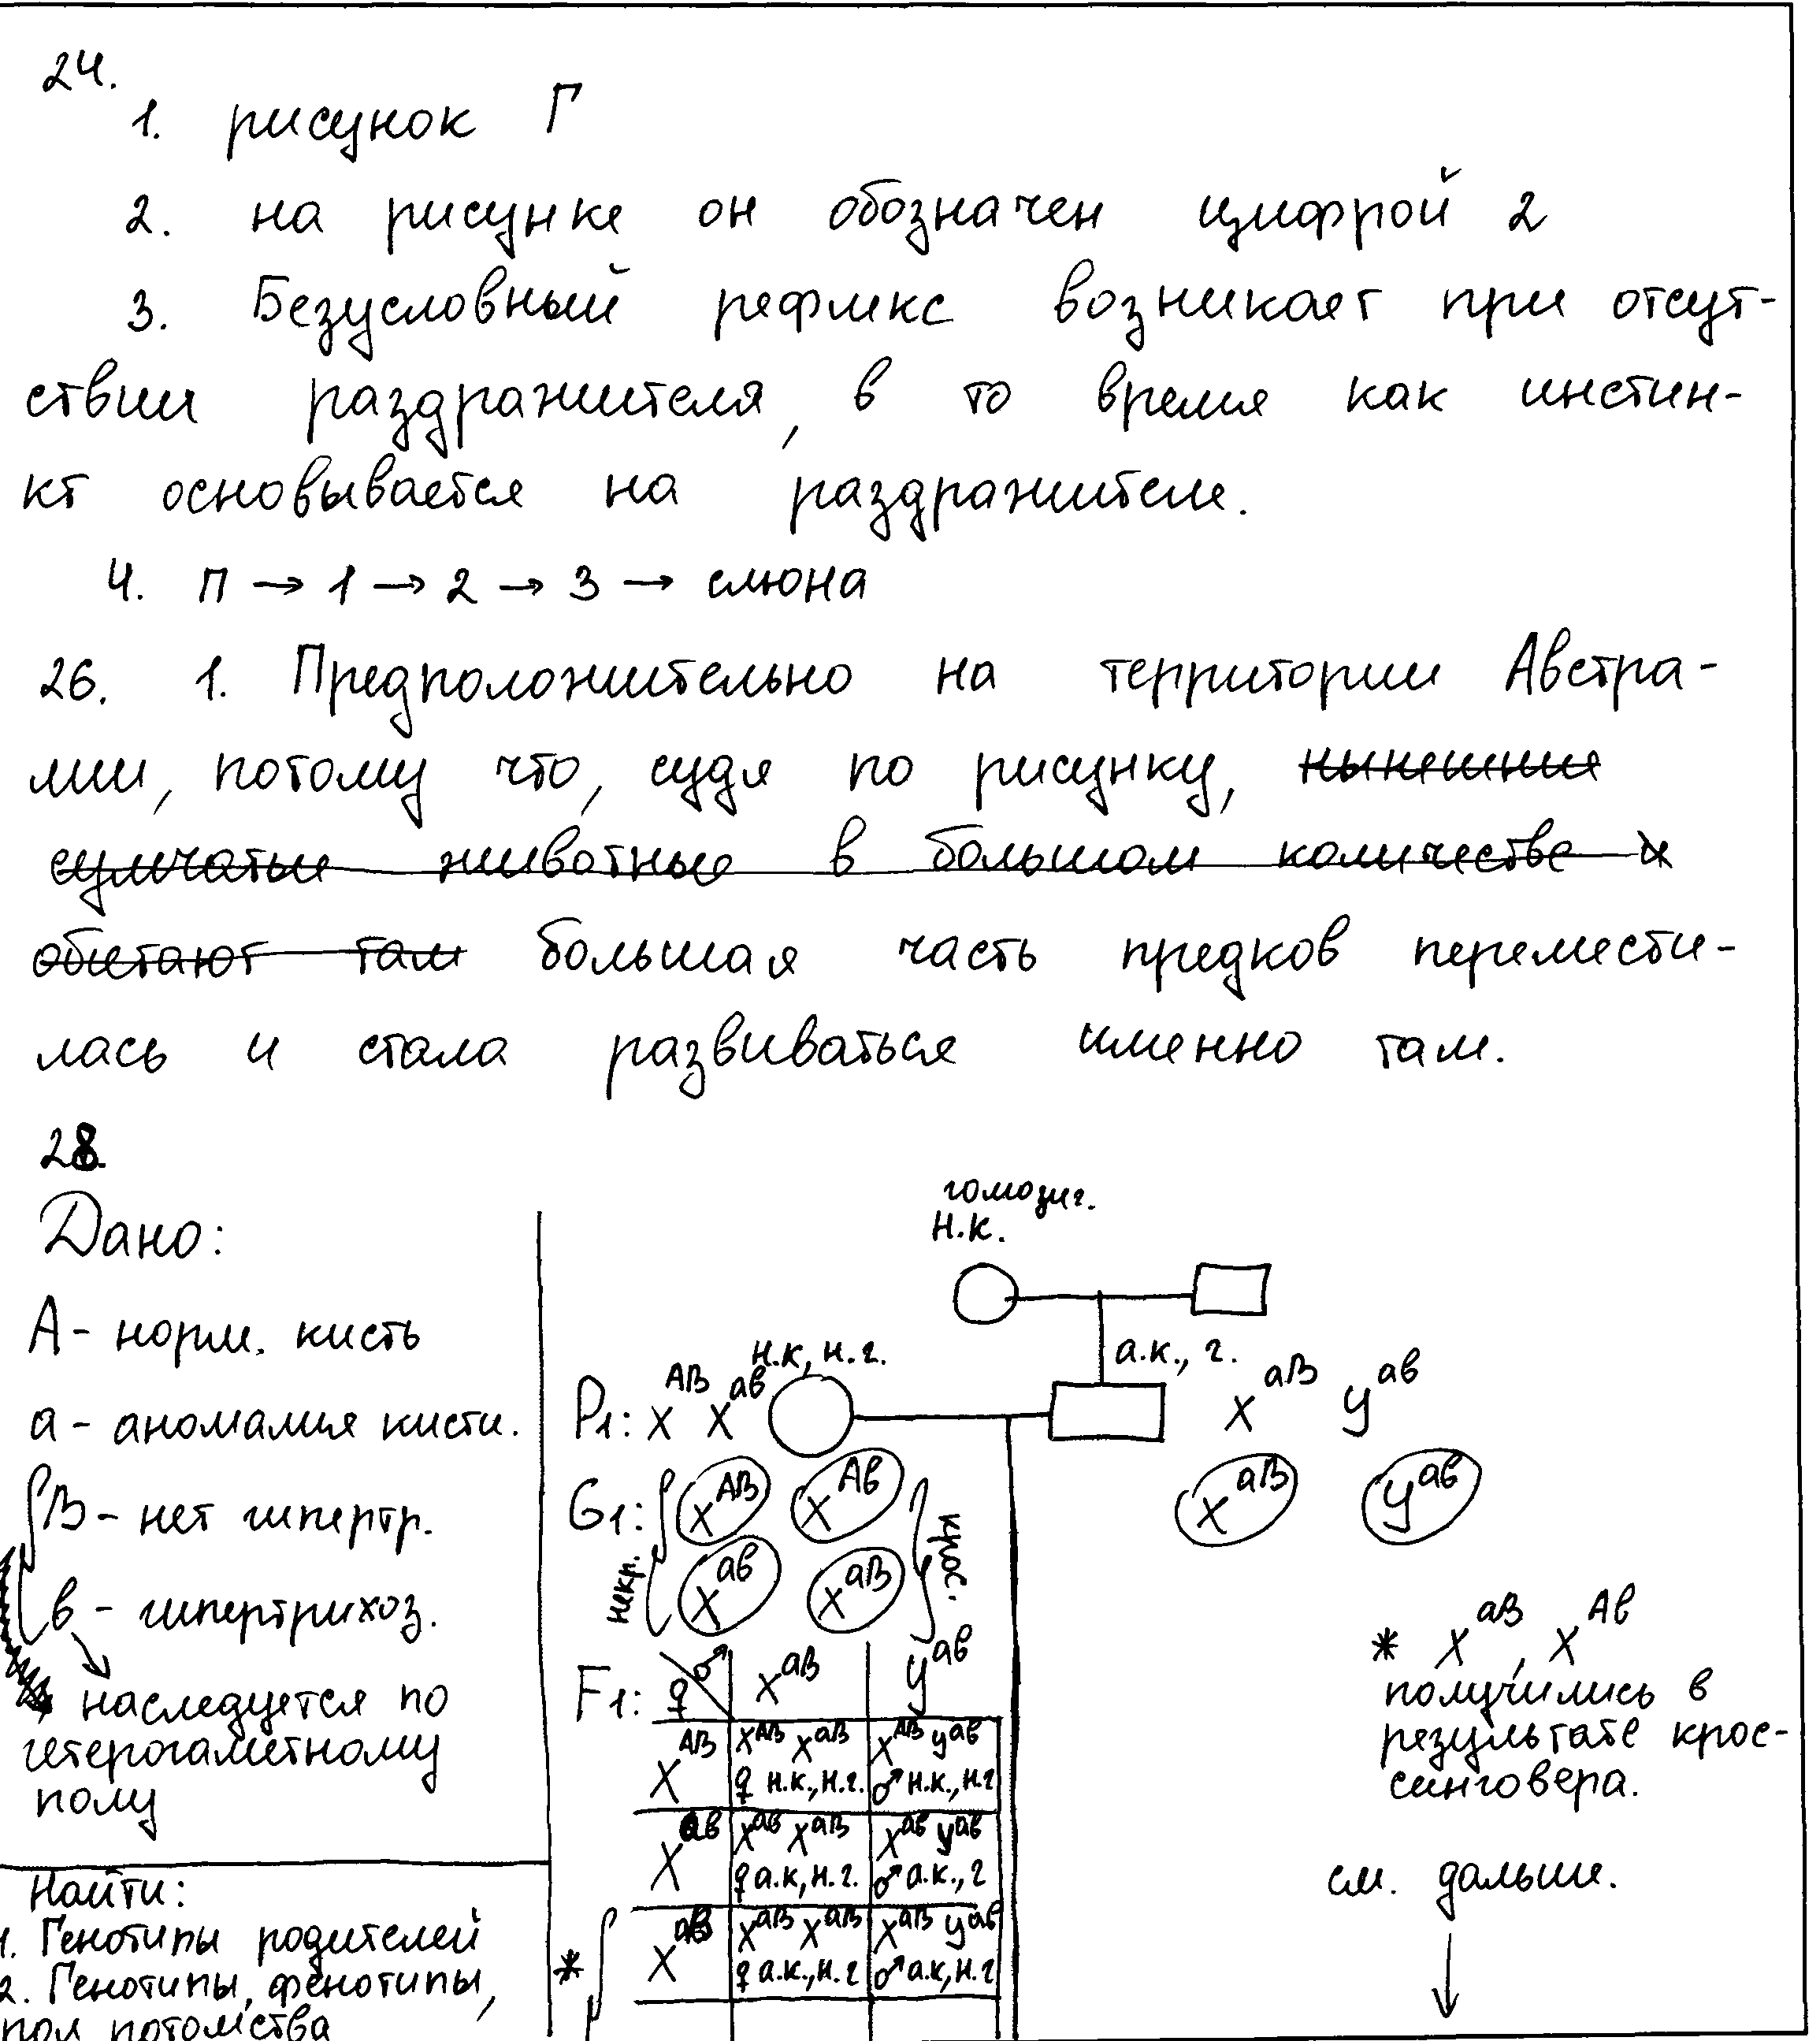 24.
1. рисунок Г
2. на рисунке он обозначен цифрой 2
3. Безусловный рефлекс возникает при отсут-
ствии раздражителя, в то время как инстин-
кт основывается на раздражителе.
4. П → 1 → 2 → 3 → слюна
26. 1. Предположительно на территории Австра-
лии, потому что, судя по рисунку, нынешние
сумчатые животные в большом количестве и
обитают там большая часть предков перемести-
лась и стала развиваться именно там.
28.
Дано:
А - норм. кисть
а - аномалия кисти.
В - нет гипертр.
в - гипертрихоз.
наследуется по
гетерогаметному
полу
Найти:
1. Генотипы родителей
2. Генотипы, фенотипы,
пол потомства
гомозиг.
н.к.
н.к, н.г.
а.к., г.
P1: X^АВ X^ав
X^аВ У^ав
G1: X^АВ X^Ав
X^ав X^аВ
некр.
крос.
X^аВ У^ав
F1: ♀ ♂ X^аВ У^ав
X^АВ X^АВ X^аВ X^АВ У^ав
♀ н.к., н.г. ♂ н.к., н.г
X^ав X^ав X^аВ X^ав У^ав
♀ а.к, н.г. ♂ а.к., г
* X^аВ X^аВ X^аВ X^аВ У^ав
♀ а.к., н.г ♂ а.к, н.г
* X^аВ, X^Ав
получились в
результате крос-
синговера.
см. дальше.